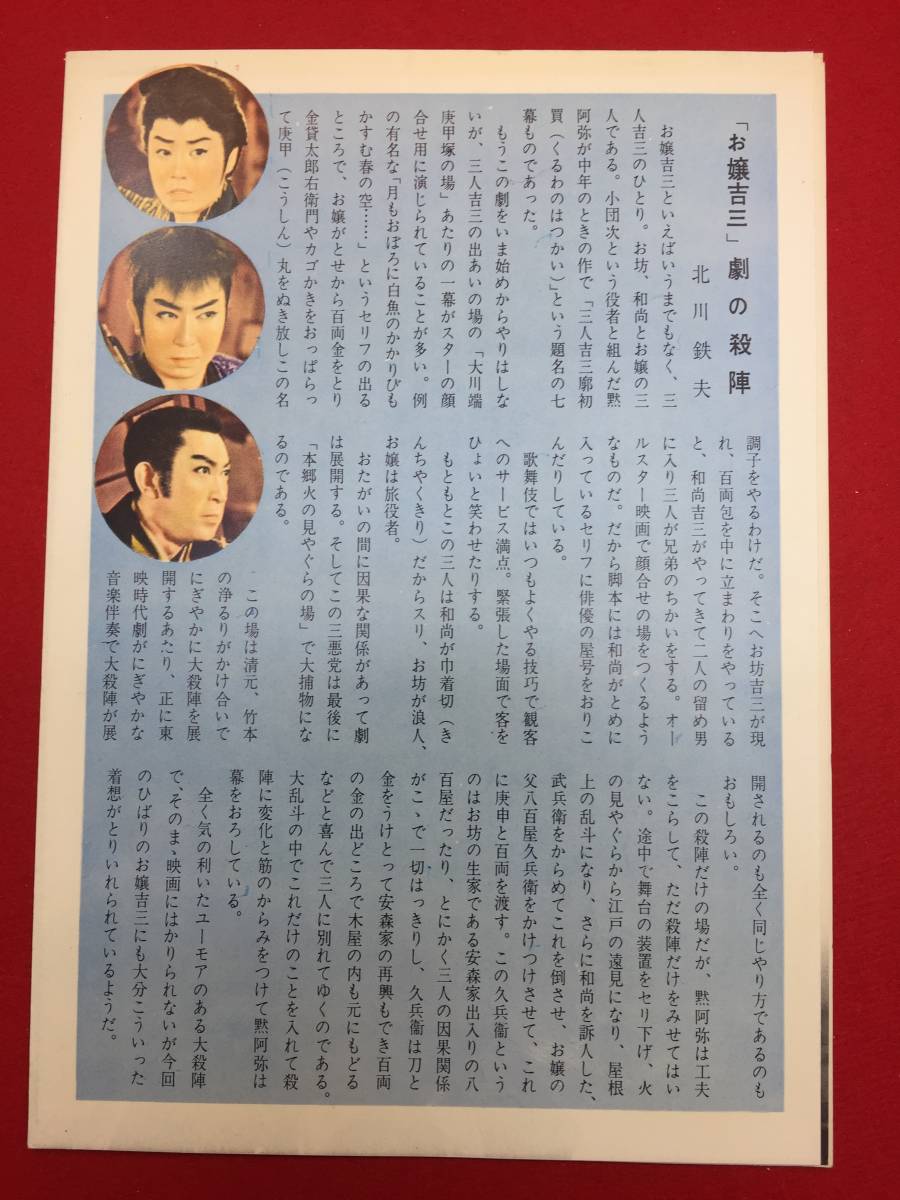 「お嬢吉三」劇の殺陣
北川鉄夫
お嬢吉三といえばいうまでもなく、三
人吉三のひとり。お坊、和尚とお嬢の三
人である。小団次という役者と組んだ黙
阿弥が中年のときの作で「三人吉三廓初
買（くるわのはつかい）」という題名の七
幕ものであった。
もうこの劇をいま始めからやりはしな
いが、三人吉三の出あいの場の「大川端
庚甲塚の場」あたりの一幕がスターの顔
合せ用に演じられていることが多い。例
の有名な「月もおぼろに白魚のかかりびも
かすむ春の空……」というセリフの出る
ところで、お嬢がとせから百両金をとり
金貸太郎右衛門やカゴかきをおっぱらっ
て庚甲（こうしん）丸をぬき放しこの名
調子をやるわけだ。そこへお坊吉三が現
れ、百両包を中に立まわりをやっている
と、和尚吉三がやってきて二人の留め男
に入り三人が兄弟のちかいをする。オー
ルスター映画で顔合せの場をつくるよう
なものだ。だから脚本には和尚がとめに
入っているセリフに俳優の屋号をおりこ
んだりしている。
歌舞伎ではいつもよくやる技巧で観客
へのサービス満点。緊張した場面で客を
ひょいと笑わせたりする。
もともとこの三人は和尚が巾着切（き
んちやくきり）だからスリ、お坊が浪人、
お嬢は旅役者。
おたがいの間に因果な関係があって劇
は展開する。そしてこの三悪党は最後に
「本郷火の見やぐらの場」で大捕物にな
るのである。
この場は清元、竹本
の浄るりがかけ合いで
にぎやかに大殺陣を展
開するあたり、正に東
映時代劇がにぎやかな
音楽伴奏で大殺陣が展
開されるのも全く同じやり方であるのも
おもしろい。
この殺陣だけの場だが、黙阿弥は工夫
をこらして、ただ殺陣だけをみせてはい
ない。途中で舞台の装置をセリ下げ、火
の見やぐらから江戸の遠見になり、屋根
上の乱斗になり、さらに和尚を訴人した、
武兵衛をからめてこれを倒させ、お嬢の
父八百屋久兵衛をかけつけさせて、これ
に庚申と百両を渡す。この久兵衛という
のはお坊の生家である安森家出入りの八
百屋だったり、とにかく三人の因果関係
がこゝで一切はっきりし、久兵衛は刀と
金をうけとって安森家の再興もでき百両
の金の出どころで木屋の内も元にもどる
などと喜んで三人に別れてゆくのである。
大乱斗の中でこれだけのことを入れて殺
陣に変化と筋のからみをつけて黙阿弥は
幕をおろしている。
全く気の利いたユーモアのある大殺陣
で、そのまゝ映画にはかりられないが今回
のひばりのお嬢吉三にも大分こういった
着想がとりいれられているようだ。